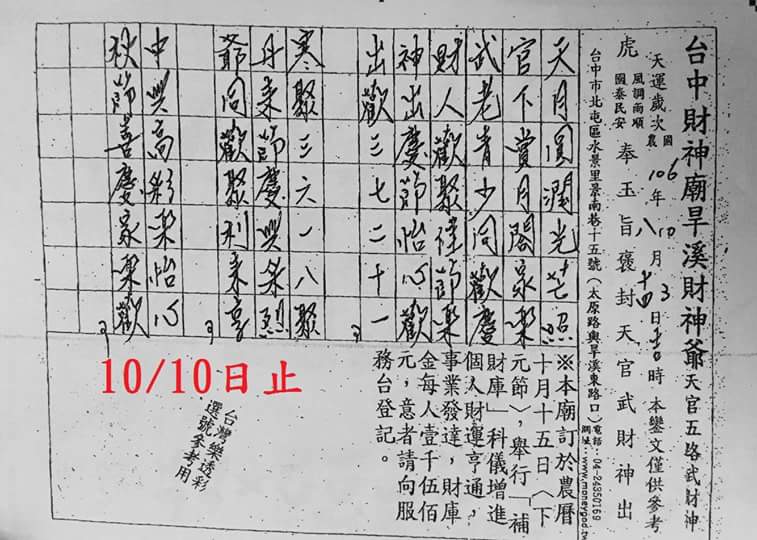 台中財神廟旱溪財神爺 天官五路武財神
天運歲次 國農 106年 八10月 十四3日 時 本鑾文僅供參考
虎 風調雨順 國泰民安 奉玉旨褒封天官武財神出
台中市北屯區水景里景南巷十五號（太原路與旱溪東路口）電話：04-24350169
網址：www.moneygod.tw
天月圓潤光芒照
官下賞月閤家樂
武老青少同歡慶
財人歡聚佳節樂
神出慶節怡心歡
出歡三七二十一
寒聚三六一八聚
丹來節慶興烈
爺同歡聚利來喜
中興高彩樂怡心
秋節喜慶家樂歡
※本廟訂於農曆
十月十五日〈下
元節〉，舉行「補
財庫」科儀增進
個人財運亨通，
事業發達，財庫
金每人壹千伍佰
元，意者請向服
務台登記。
10/10日止
台灣樂透彩
選號參考用